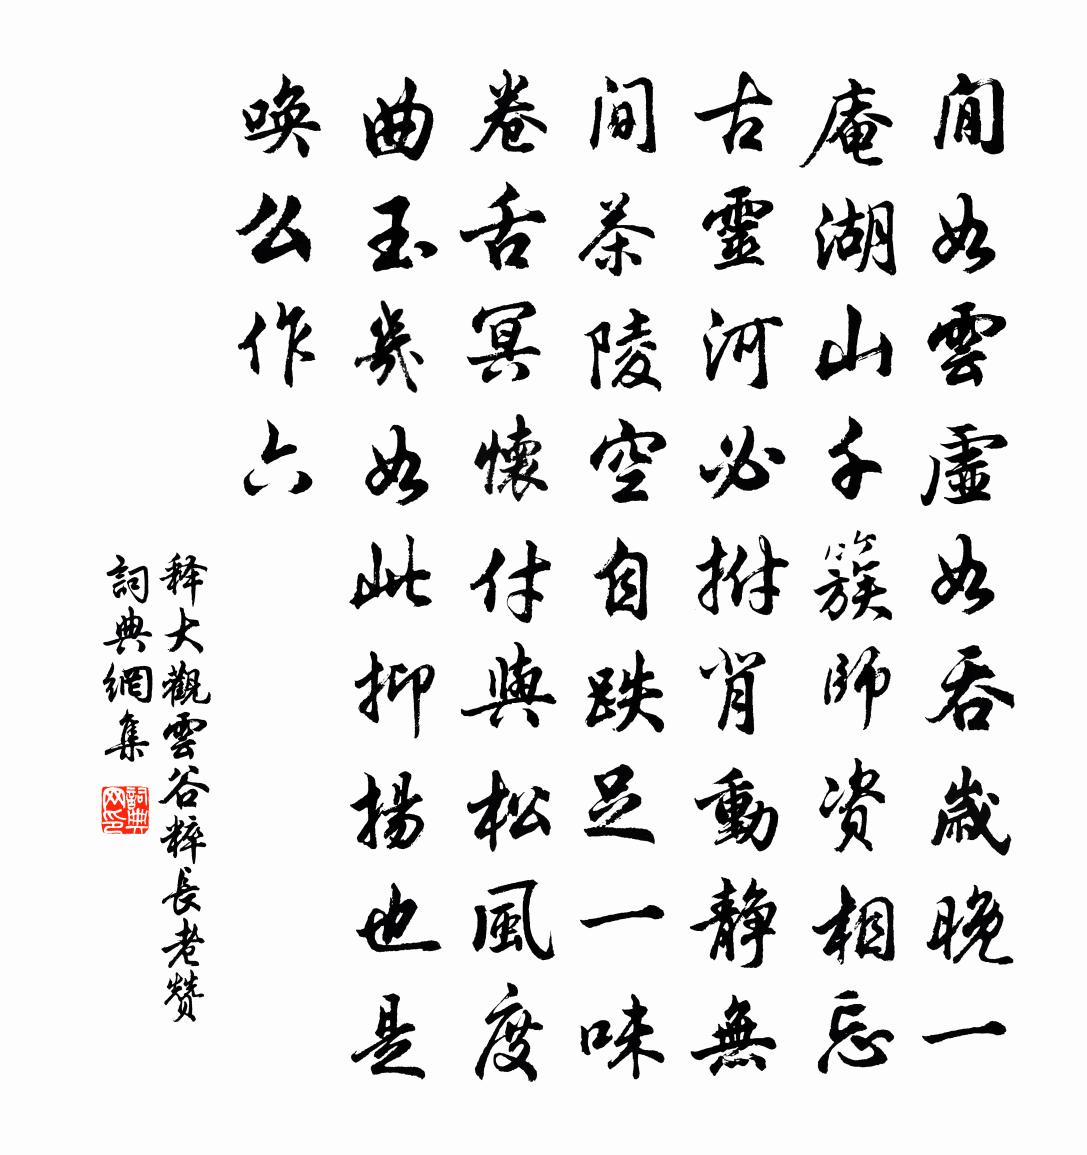 閒如雲虛如吞歲晚一
庵湖山千簇師資相忘
古靈河必拊背動靜無
間茶陵空自跌足一味
卷舌冥懷付與松風度
曲玉幾如此抑揚也是
喚么作六
释大觀雲谷粹長老赞
詞典網集
詞典网印